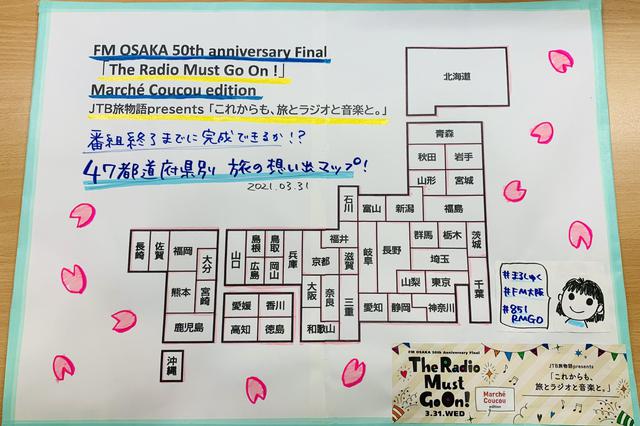 FM OSAKA 50th anniversary Final
「The Radio Must Go On !」
Marché Coucou edition
JTB旅物語presents 「これからも、旅とラジオと音楽と。」
番組終了までに完成できるか!?
47都道府県別 旅の想い出マップ!
2021.03.31
北海道
青森
秋田 岩手
山形 宮城
石川 富山 新潟 福島
長崎 佐賀 福岡 大分
山口 島根 鳥取 兵庫
広島 岡山
福井 京都 滋賀
岐阜 長野 群馬 栃木 茨城
埼玉
熊本 宮崎
大阪 奈良 三重
山梨 東京 千葉
愛媛 香川
愛知 静岡 神奈川
鹿児島
高知 徳島
和歌山
沖縄
#まるしゅく
#FM大阪
#851
RMGO
FM OSAKA 50th Anniversary Final
The Radio
Must
Go On!
3.31.WED
Marché
Coucou
edition
JTB旅物語presents
「これからも、
旅とラジオと音楽と。」